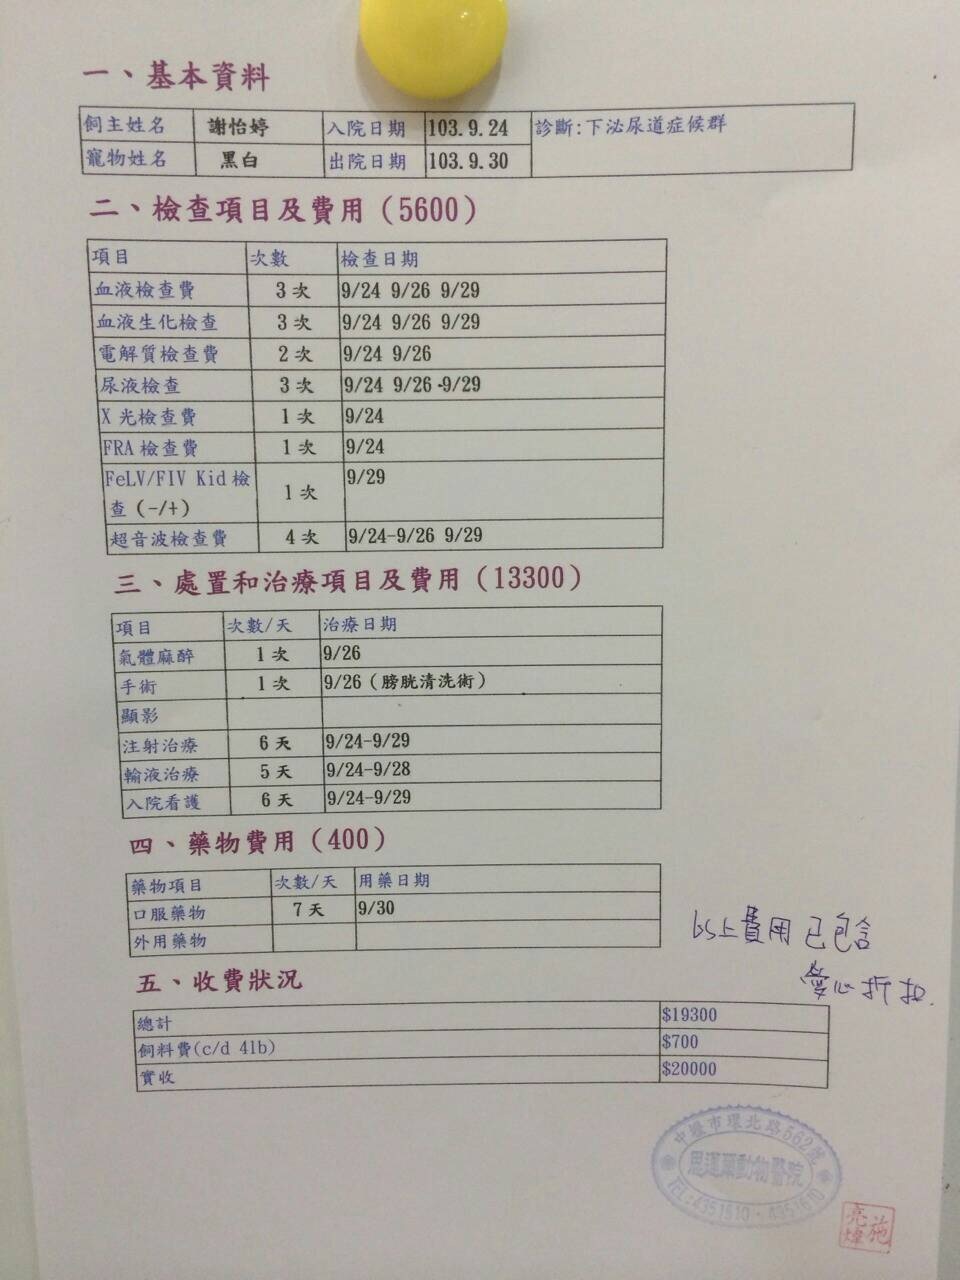 一、基本資料
飼主姓名 謝怡婷 入院日期 103.9.24 診斷:下泌尿道症候群
寵物姓名 黑白 出院日期 103.9.30
二、檢查項目及費用(5600)
項目 次數 檢查日期
血液檢查費 3次 9/24 9/26 9/29
血液生化檢查 3次 9/24 9/26 9/29
電解質檢查費 2次 9/24 9/26
尿液檢查 3次 9/24 9/26-9/29
X光檢查費 1次 9/24
FRA檢查費 1次 9/24
FeLV/FIV Kid檢
查(-/+) 1次 9/29
超音波檢查費 4次 9/24-9/26 9/29
三、處置和治療項目及費用(13300)
項目 次數/天 治療日期
氣體麻醉 1次 9/26
手術 1次 9/26(膀胱清洗術)
顯影
注射治療 6天 9/24-9/29
輸液治療 5天 9/24-9/28
入院看護 6天 9/24-9/29
四、藥物費用(400)
藥物項目 次數/天 用藥日期
口服藥物 7天 9/30
外用藥物
以上費用已包含
愛心折扣.
五、收費狀況
總計 $19300
飼料費(c/d 4lb) $700
實收 $20000
中壢市環北路562號
恩運爾動物醫院
TEL:4351510·4351610
施亮煒